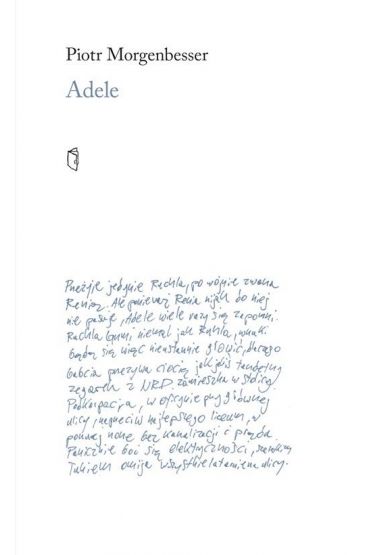 Piotr Morgenbesser
Adele
Przeżyje jedynie Ruchla, po wojnie zwana
Renią. Ale ponieważ Renia nijak do niej
nie pasuje, Adele wiele razy się zapomni.
Ruchla Gumi, niemal jak Ruhla, wnuki
będą się więc nieustannie głowić, dlaczego
babcia przezywa ciocię jakąś tandetną
zegarka z NRD. Zamieszka w stolicy
Podkarpacia, w oficynie przy głównej
ulicy, naprzeciw najlepszego liceum, w
norze bez kanalizacji i prądu.
Panicznie boi się elektryczności,
łukiem omija wszystkie latarnie na ulicy.